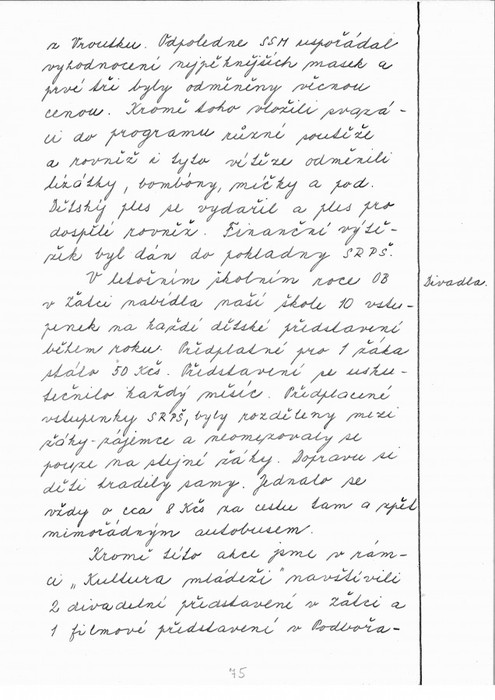 z Vroutku. Odpoledne SSM uspořádal
vyhodnocení nejpěknějších masek a
prvé tři byly odměněny věcnou
cenou. Kromě toho vložili svazá-
ci do programu různé soutěže
a rovněž i tyto vítěze odměnili
lízátky, bombóny, míčky a pod.
Dětský ples se vydařil a ples pro
dospělé rovněž. Finanční výtě-
žek byl dán do pokladny SRPŠ.
V letošním školním roce OB
v Žatci nabídla naší škole 10 vstu-
penek na každé dětské představení
během roku. Předplatné pro 1 žáka
stálo 50 Kčs. Představení se usku-
tečnilo každý měsíc. Předplacené
vstupenky SRPŠ, byly rozděleny mezi
žáky-zájemce a neomezovaly se
pouze na stejné žáky. Dopravu si
děti hradily samy. Jednalo se
vždy o cca 8 Kčs na cestu tam a zpět
mimořádným autobusem.
Kromě této akce jsme v rám-
ci „Kultura mládeži" navštívili
2 divadelní představení v Žatci a
1 filmové představení v Podbořa-
Divadla.
75